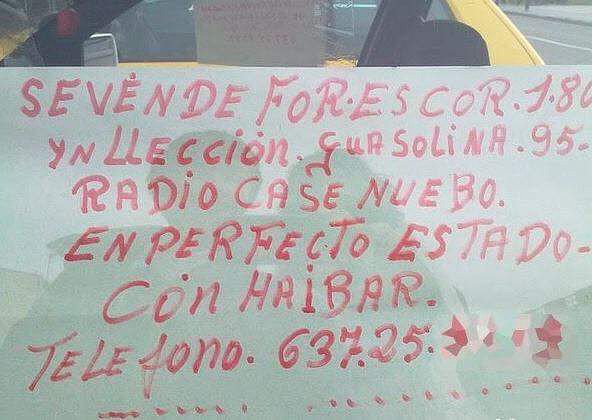 SE VENDE FOR.ESCOR.1.80
YN LLECCIÓN. guASOLiNA.95.
RADIO CASE NUEBO.
EN PERFECTO ESTADO-
CON HAIBAR.
TELEfONO. 637.25.